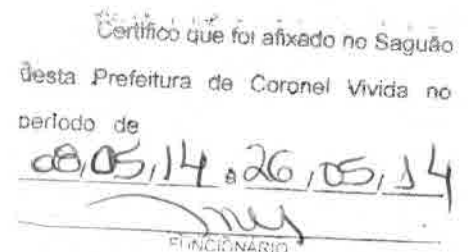 Certifico que foi afixado no Saguão
desta Prefeitura de Coronel Vivida no
período de
08,05,14 a 26,05,14
FUNCIONÁRIO